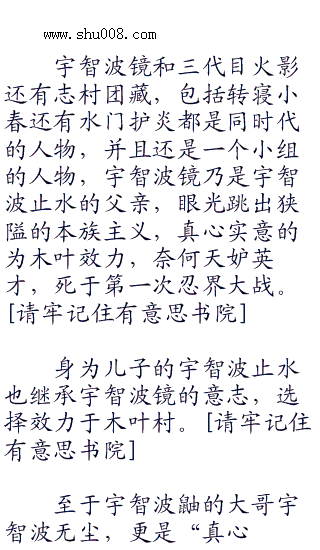 www.shu008.com
宇智波镜和三代目火影
还有志村团藏，包括转寝小
春还有水门护炎都是同时代
的人物，并且还是一个小组
的人物，宇智波镜乃是宇智
波止水的父亲，眼光跳出狭
隘的本族主义，真心实意的
为木叶效力，奈何天妒英
才，死于第一次忍界大战。
[请牢记住有意思书院]
身为儿子的宇智波止水
也继承宇智波镜的意志，选
择效力于木叶村。[请牢记住
有意思书院]
至于宇智波鼬的大哥宇
智波无尘，更是“真心